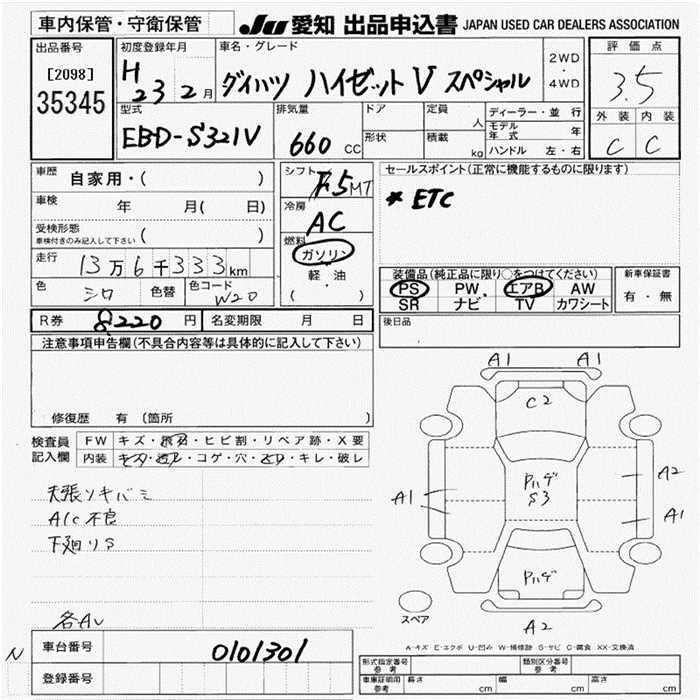 車内保管・守衛保管
JU 愛知 出品申込書 JAPAN USED CAR DEALERS ASSOCIATION
出品番号
[2098]
35345
初度登録年月
H 23 2月
車名・グレード
ダイハツ ハイゼット V スペシャル
2WD
・
4WD
評価点
3.5
外装 内装
C C
型式
EBD-S321V
排気量
660 CC
ドア
形状
定員
人
積載
kg
ディーラー・並行
モデル年式 年
ハンドル 左・右
車歴 自家用・( )
車検 年 月( 日)
受検形態
車検付きのみ記入して下さい ( )
走行 13万6千333km
色 シロ 色替 色コード W20
シフト F5MT
冷房
AC
燃料
ガソリン
軽・油
( )
セールスポイント(正常に機能するものに限ります)
* ETC
装備品(純正品に限り○をつけてください)
PS PW エアB AW
SR ナビ TV カワシート
新車保証書
有・無
後日品
R券 8,220 円 名変期限 月 日
注意事項申告欄(不具合内容等は具体的に記入して下さい)
修復歴 有 (箇所 )
検査員記入欄
FW キズ・飛石・ヒビ割・リペア跡・X要
内装 キズ・汚レ・コゲ・穴・スレ・キレ・破レ
天張ソキバミ
A/C不良
下廻りS
各AU
A1 A1
C2
Pハゲ
S3
A1
A2
A1
Pハゲ
A2
スペア
A-キズ E-エクボ U-凹み W-補修跡 S-サビ C-腐食 XX-交換済
N
車台番号 0101301
登録番号
形式指定番号 参考 類別区分番号 参考
車庫証明用 参考 長さ cm 幅 cm 高さ cm